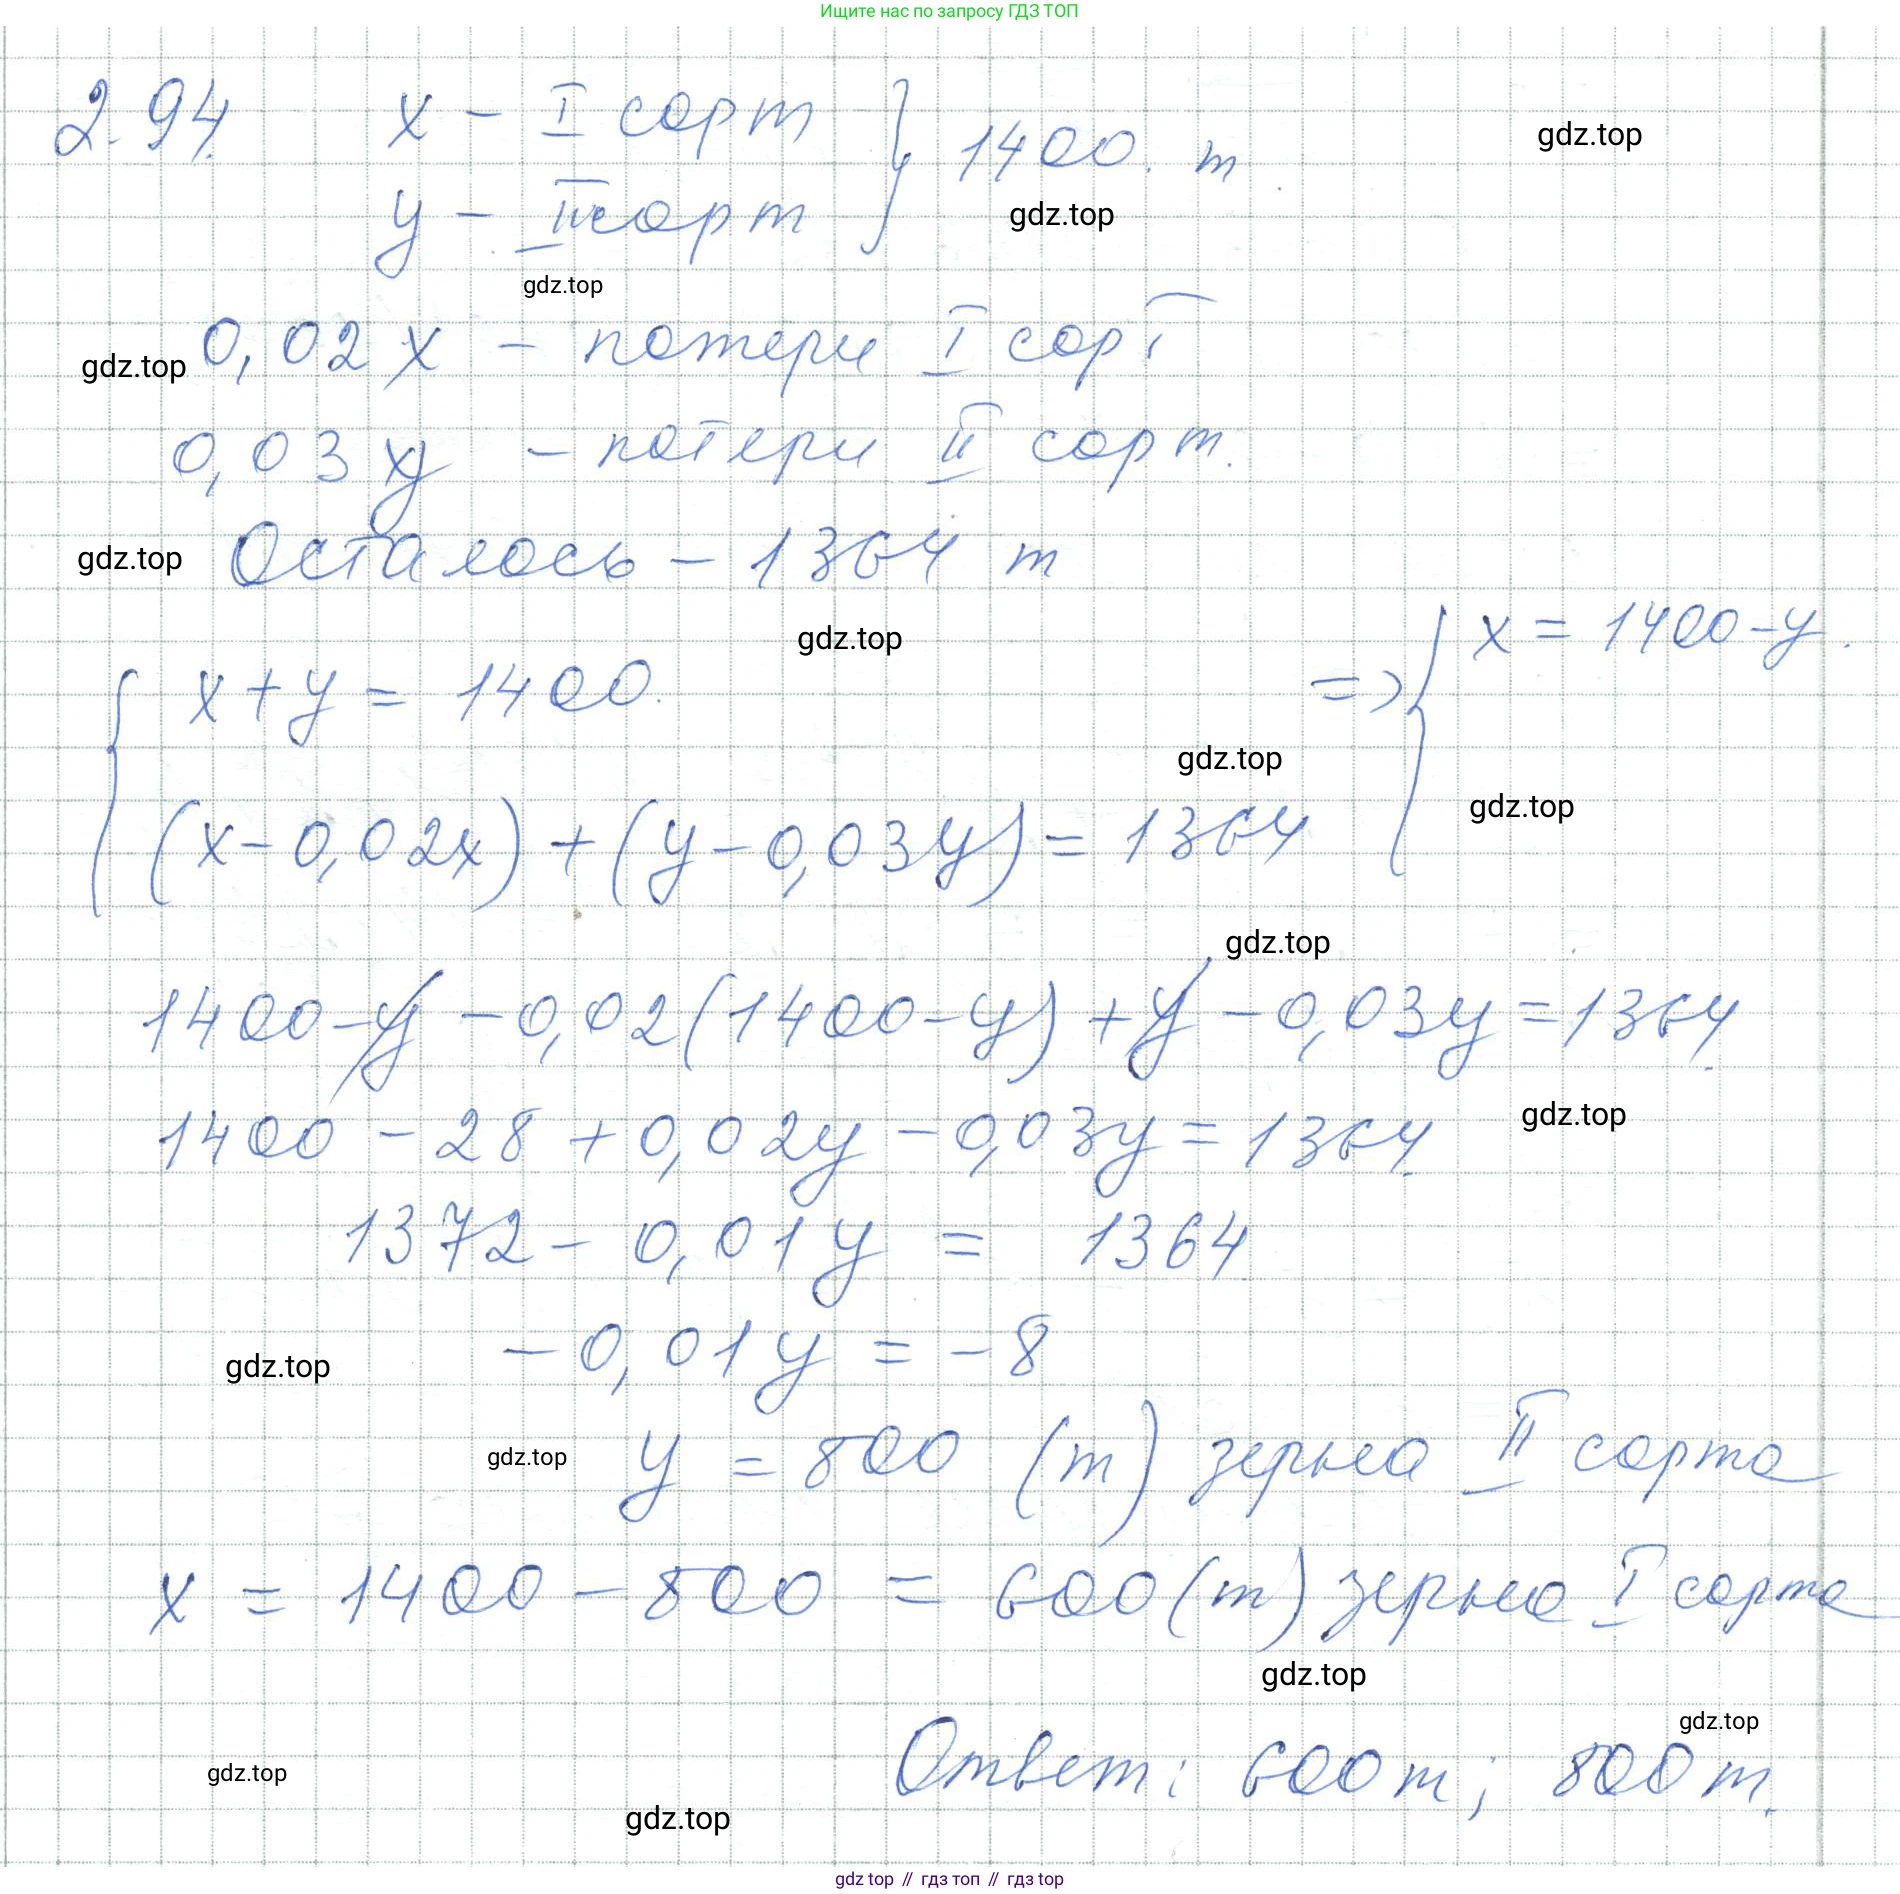 Ищите нас по запросу ГДЗ ТОП
2.94. x – I сорт } 1400. т
gdz.top
y – II сорт
gdz.top
gdz.top
0,02x – потери I сорт
gdz.top
0,03y – потери II сорт.
Осталось – 1364 т
gdz.top
gdz.top
{ x + y = 1400. => { x = 1400 – y.
gdz.top
gdz.top
(x – 0,02x) + (y – 0,03y) = 1364
gdz.top
1400 – y – 0,02(1400 – y) + y – 0,03y = 1364.
gdz.top
1400 – 28 + 0,02y – 0,03y = 1364.
1372 – 0,01y = 1364
– 0,01y = – 8
gdz.top
gdz.top
y = 800 (т) зерна II сорта
x = 1400 – 800 = 600 (т) зерна I сорта
gdz.top
gdz.top
Ответ: 600 т; 800 т.
gdz.top
gdz.top
gdz top // гдз топ // гдз top